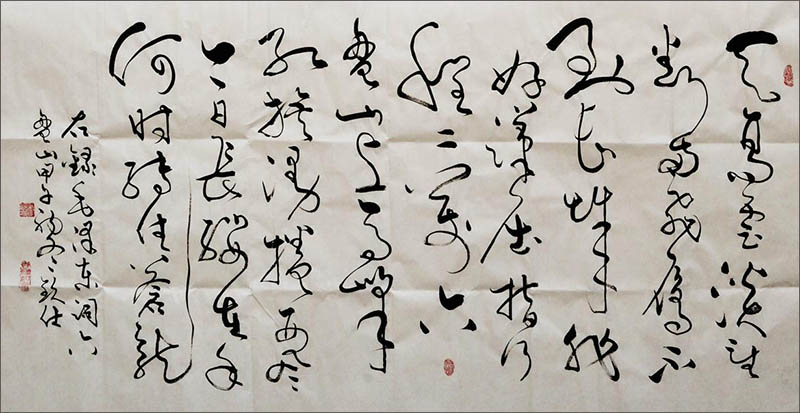 天高雲淡望
断南飛雁不
到长城非
好漢屈指行
程二万六
盘山上高峰
红旗漫捲西风
今日長纓在手
何时缚住苍龙
右録毛泽东词六
盘山甲午初冬